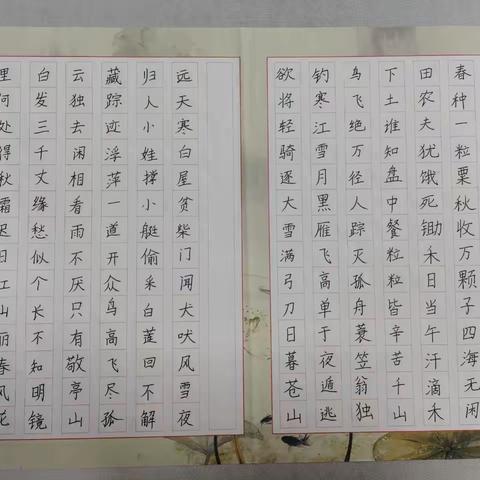 春种一粒粟秋收万颗子四海无闲
田农夫犹饿死锄禾日当午汗滴禾
下土谁知盘中餐粒粒皆辛苦千山
鸟飞绝万径人踪灭孤舟蓑笠翁独
钓寒江雪月黑雁飞高单于夜遁逃
欲将轻骑逐大雪满弓刀日暮苍山
远天寒白屋贫柴门闻犬吠风雪夜
归人小娃撑小艇偷采白莲回不解
藏踪迹浮萍一道开众鸟高飞尽孤
云独去闲相看两不厌只有敬亭山
白发三千丈缘愁似个长不知明镜
里何处得秋霜迟日江山丽春风花